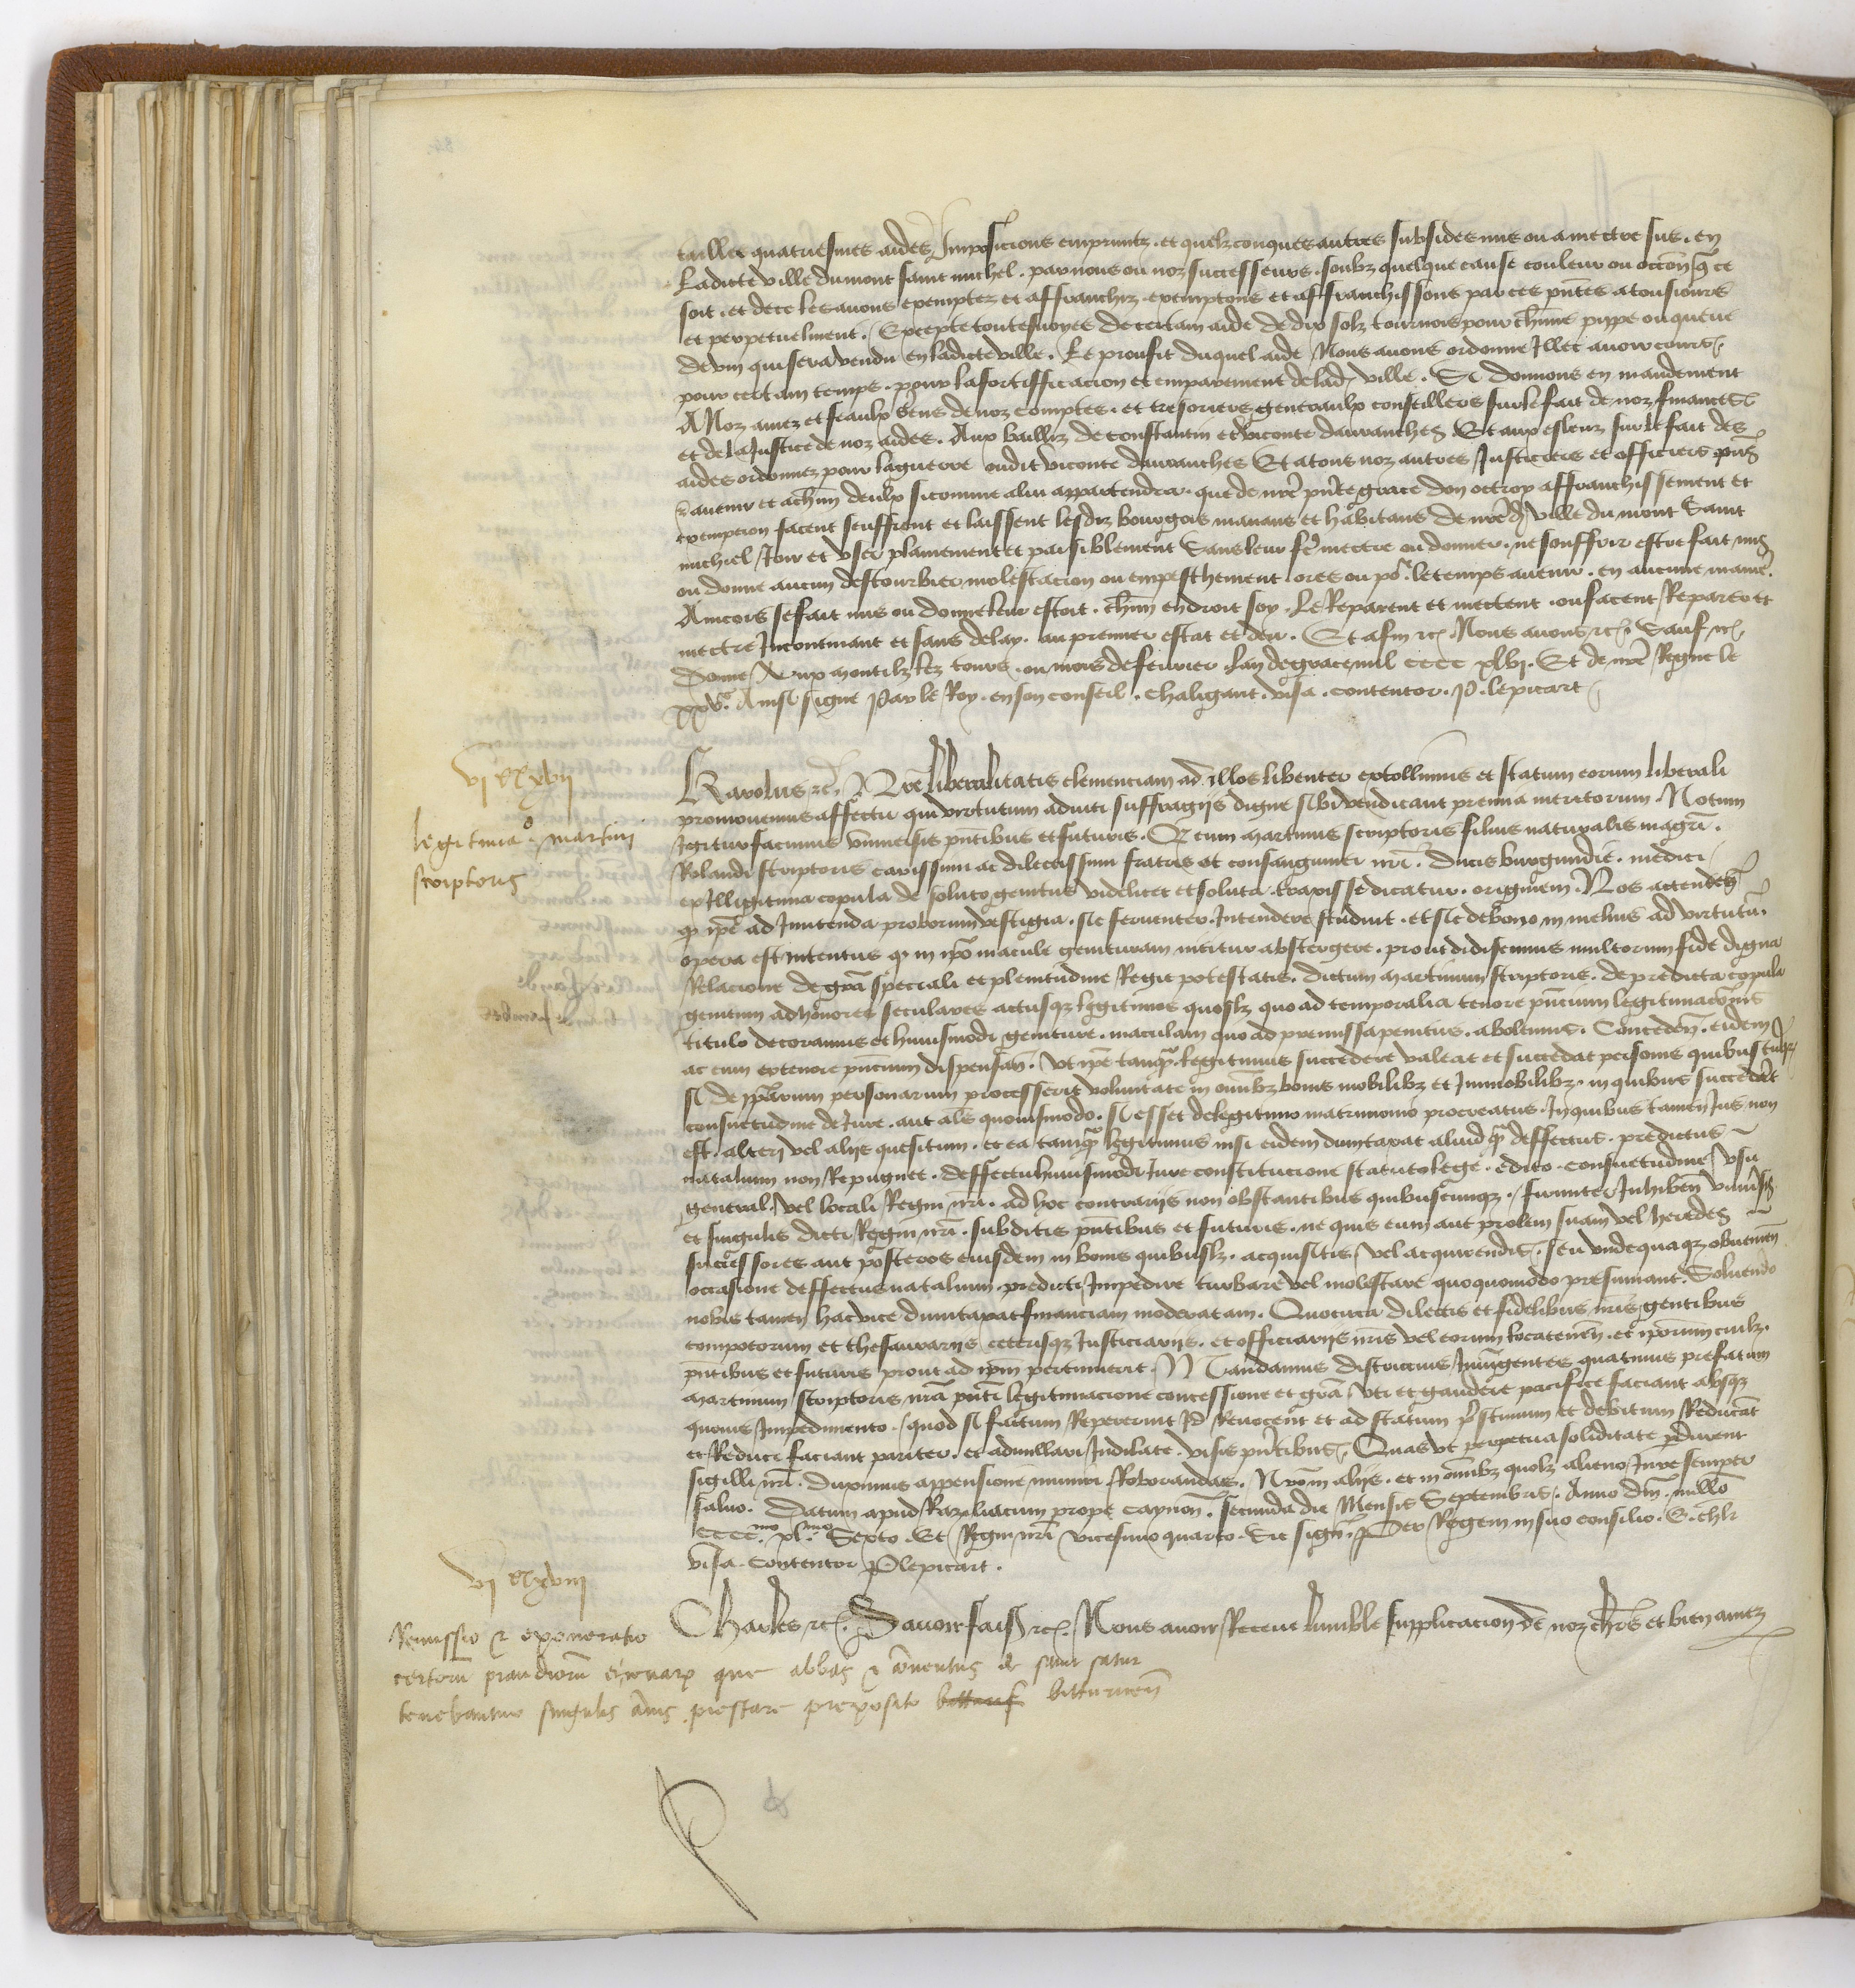 tailles quatriesmes aides Imposicions empruntz . et quelzconques autres subsides mis ou a mectre sus . en
Ladicte ville du mont saint michel . par nous ou noz successeurs . soubz quelque cause couleur ou occōn q̄ ce
soit . et de ce les avons exemptez et affranchiz . exemptons et affranchissons par ces pn̄tes a tousiours
et perpetuelment . Excepte toutesvoyes de certain aide de dix solz tournois pour chūne pippe ou queue
de vin qui sera vendu en ladicte ville . Le proufit duquel aide Nous avons ordonne Illec avoir cours
pour certain temps . pour la fortifficacion et emparement de lad ville . Si donnons en mandement
A Noz amez et feaulx Gens de noz comptes . et tresoriers generaulx conseillers sur le fait de noz finances
et de la Justice de noz aides . Aux bailliz de constantin et viconte davranches Et aux esleuz sur le fait des
aides ordonnez pour la guerre oudit viconte davranches Et a tous noz autres Justiciers et officiers pn̄s
et avenir et a chūn deulx sicomme a lui appartendra . que de nr̄e pn̄te grace don octroy affranchissement et
exempcion facent seuffrent et laissent lesdiz bourgois manans et habitans de nr̄ed ville du mont Saint
michiel Joir et user plainement et paisiblement Sans leur fr̄e mectre ou donner . ne souffrir estre fait mis
ou donne aucun destourbier molestacion ou empeschement ores ou pō le temps avenir . en aucune manie .
Aincois se fait mis ou donne leur estoit . chūn endroit soy . Le Reparent et mectent . ou facent Reparer et
mectre Incontinant et sans delay . au premier estat et deu . Et afin etc Nous avons etc Sauf etc
Donne Aux montilz lez tours . ou mois de fevrier Lan de grace mil cccc xlvi . Et de nr̄e Regne le
xxve . Ainsi signe Par le Roy . en son conseil . Chaligant . visa . contentor . P . lepicart
vi xx xvii
legitimaō martini
scriptoris
Karolus etc Nr̄e liberalitatis clemenciam ad illos libenter extollimus et statum eorum liberali
promovemus affectu qui virtutum adiuti suffragiis digne sibi vendicant premia meritorum . Notum
Igitur facimus universis pn̄tibus et futuris . Qz cum martinus scriptoris filius naturalis magr̄i .
Rolandi scriptoris carissimi ac dilectissimi fratris et consanguinei nr̄i . Ducis burgundie . medici
ex Illigitima copula de soluto genitus videlicet et soluta . traxisse dicatur . originem . Nos attendentes
qz ipē ad Imitenda proborum vestigia . sic ferventer . Intendere studuit . et sic de bono in melius ad virtutū
opera est intentus qz in ipō macule genituram nititur abstergere . prout didiscimus multorum fide digna
Relacione de grā speciali et plenitudine Regie potestatis . dictum martinum scriptoris . de predicta copula
genitum ad honores seculares actusqz legitimos quoslz quo ad temporalia tenore pn̄cium legitimacōnis
titulo decoramus et huiusmodi geniture . maculam quo ad premissa penitus . abolemus . Conceden̄ . eidem
ac cum eo tenore pn̄cium dispensan̄ . Ut ipē tanq̄ . legitimus succedere valeat et succedat personis quibuscūqz
si de ip̄arum personarum processerit voluntate in omībz bonis mobilibz et Immobilibz . in quibus succederet
consuetudine de Jure . aut alīs quovismodo . si esset de legitimo matrimonio procreatus . In quibus tamen Jus non
est . alteri vel aliis quesitum . et ea tamq̄ legitimus nisi eidem dumtaxat aliud q̄ deffectus . predictus
natalium non Repugnet . deffectu huiusmodi Jure constitucione statuto lege . edicto . consuetudine Usu
general . vel locali Regni nr̄i . ad hoc contrariis non obstantibus quibuscunqz . firmiter Inhiben̄ universis
et singulis dicti Regni nr̄i . subditis pn̄tibus et futuris . ne quis eum aut prolem suam vel heredes
successores aut posteros eiusdem in bonis quibuslz . acquisitis vel acquirendis . seu undequaqz obvenien̄
occasione deffectus natalium . predicti Impedire turbare vel molestare quoquomodo presumant . Solvendo
nobis tamen hac vice dumtaxat financiam moderatam . Quocirca dilectis et fidelibus nr̄is gentibus
compotorum et thesaurariis ceterisqz Justiciariis . et officiariis nr̄is vel eorum locatenen̄ . et ipōrum cuilz .
pn̄tibus et futuris prout ad ipm̄ pertinuerit . Mandamus districcius Iniungentes quatinus prefatum
martinum scriptoris nr̄a pn̄ti legitimacione concessione et grā Uti et gaudere pacifice faciant absqz
quovis Impedimento . quod si factum Repererint Id Revocent et ad statum p̄stinum et debitum Reducāt
et Reduci faciant pariter . et adnullari Indilate . visis pn̄tibus . Quas ut perpetua soliditate p̄durent
sigilli nr̄i . duximus appensione munīri Roborandas . Nr̄o in aliis . et in om̄ibz quolz alieno Jure semper
salvo . Datum apud Razilliacum prope caynon̄ . secunda die Mensis Septembris . Anno dn̄i . millō
cccc mo xl mo Sexto . Et Regni nr̄i vicesimo quarto . Sic sign̄ . Per Regem in suo consilio . E . chlr
visa . Contentor P lepicart .
vi xx xviii
Charles etc . Savoir faisōs etc . Nous avoir Receue lumble supplicacion de noz chr̄s et bien amez
Remissio et exoneratio
certorū prandiorū et cenarz que abbas et cōventus de saint satur
tenebantur singulis anīs prestare preposito bitturicen̄